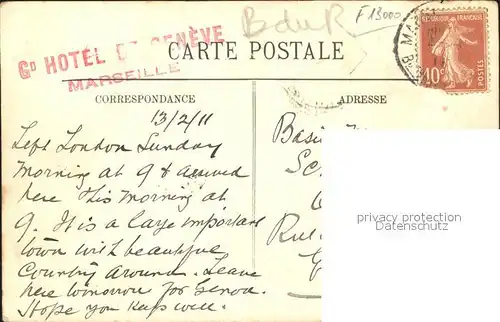 B du R
F 13000
Gd HOTEL DE GENÈVE
MARSEILLE
CARTE POSTALE
REPUBLIQUE FRANÇAISE
10c
POSTES
CORRESPONDANCE
ADRESSE
13/2/11
Left London Sunday
Morning at 9 & arrived
here This Morning at
9. It is a large important
town with beautiful
Country around. Leave
here tomorrow for Genoa.
Hope you keep well.
privacy protection
Datenschutz